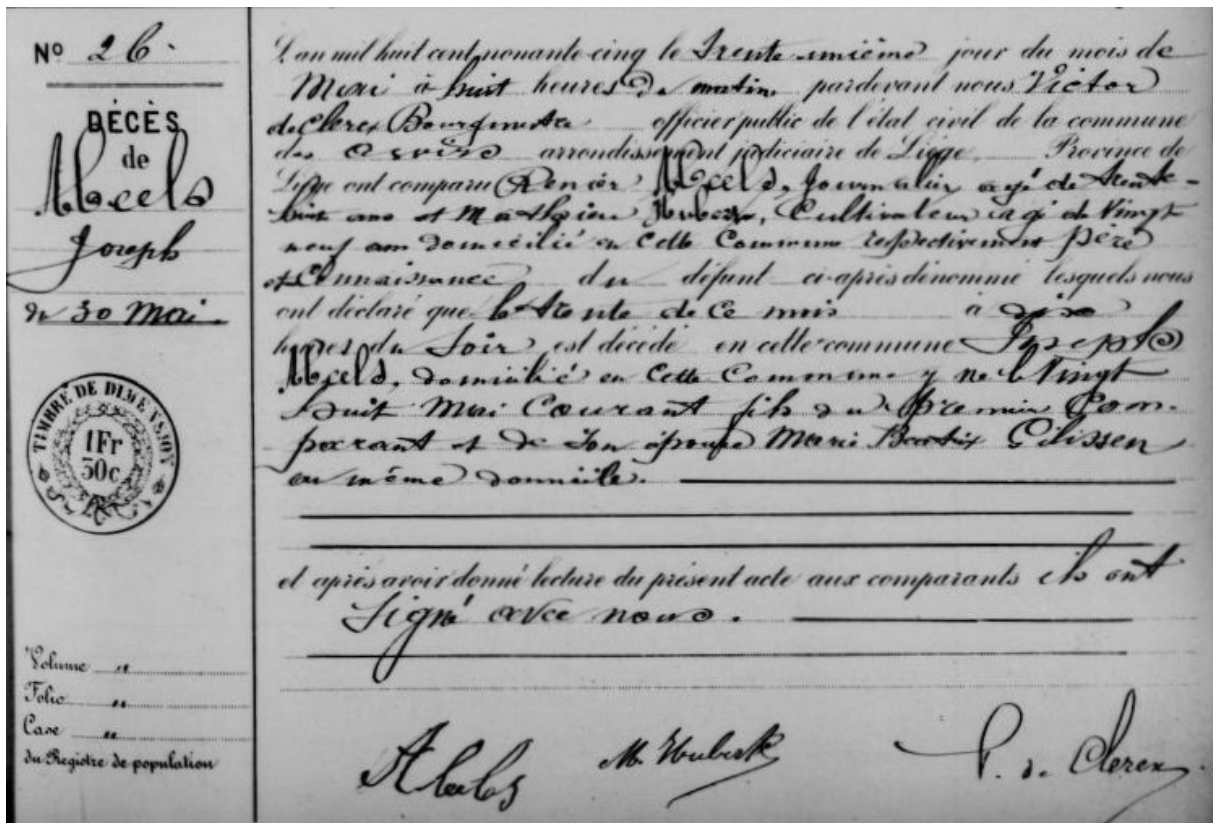 Nº 26.
DÉCÈS
de
Abeels
Joseph
du 30 Mai.
TIMBRE DE DIMENSION
1Fr
30c
Volume "
Folio "
Case "
du Registre de population
L'an mil huit cent nonante-cinq le Trente-unième jour du mois de
Mai à huit heures du matin, pardevant nous Victor
de Clerex Bourgmestre officier public de l'état civil de la commune
des arrondissement judiciaire de Liège, Province de
Liége ont comparu Renier Abeels, Journalier, agé de trente-
huit ans et Mathieu Huberts, Cultivateur agé de Vingt
neuf ans domicilié en cette Commune respectivement père
et Connaissance du défunt ci-après dénommé lesquels nous
ont déclaré que le trente de ce mois à
heures du Soir est décédé en cette commune Joseph
Abeels, domicilié en Cette Commune y né le Vingt
huit Mai Courant fils du Premier Com-
parant et de Son épouse Marie Beatrix Gilissen
au même domicile.
et après avoir donné lecture du présent acte aux comparants ils ont
Signé avec nous.
M. Huberts
V. de Clerex